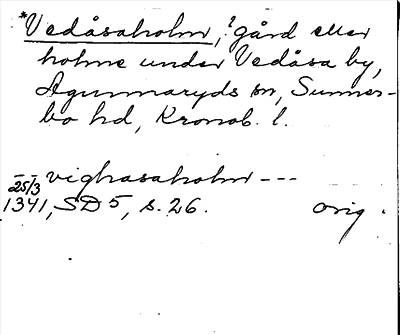 *Vedåsaholm, ? gård eller
holme under Vedåsa by,
Agunnaryds sn, Sunner-
bo hd, Kronob. l.
vighasaholm ---
25/3
1341, SD 5, s. 26. orig.